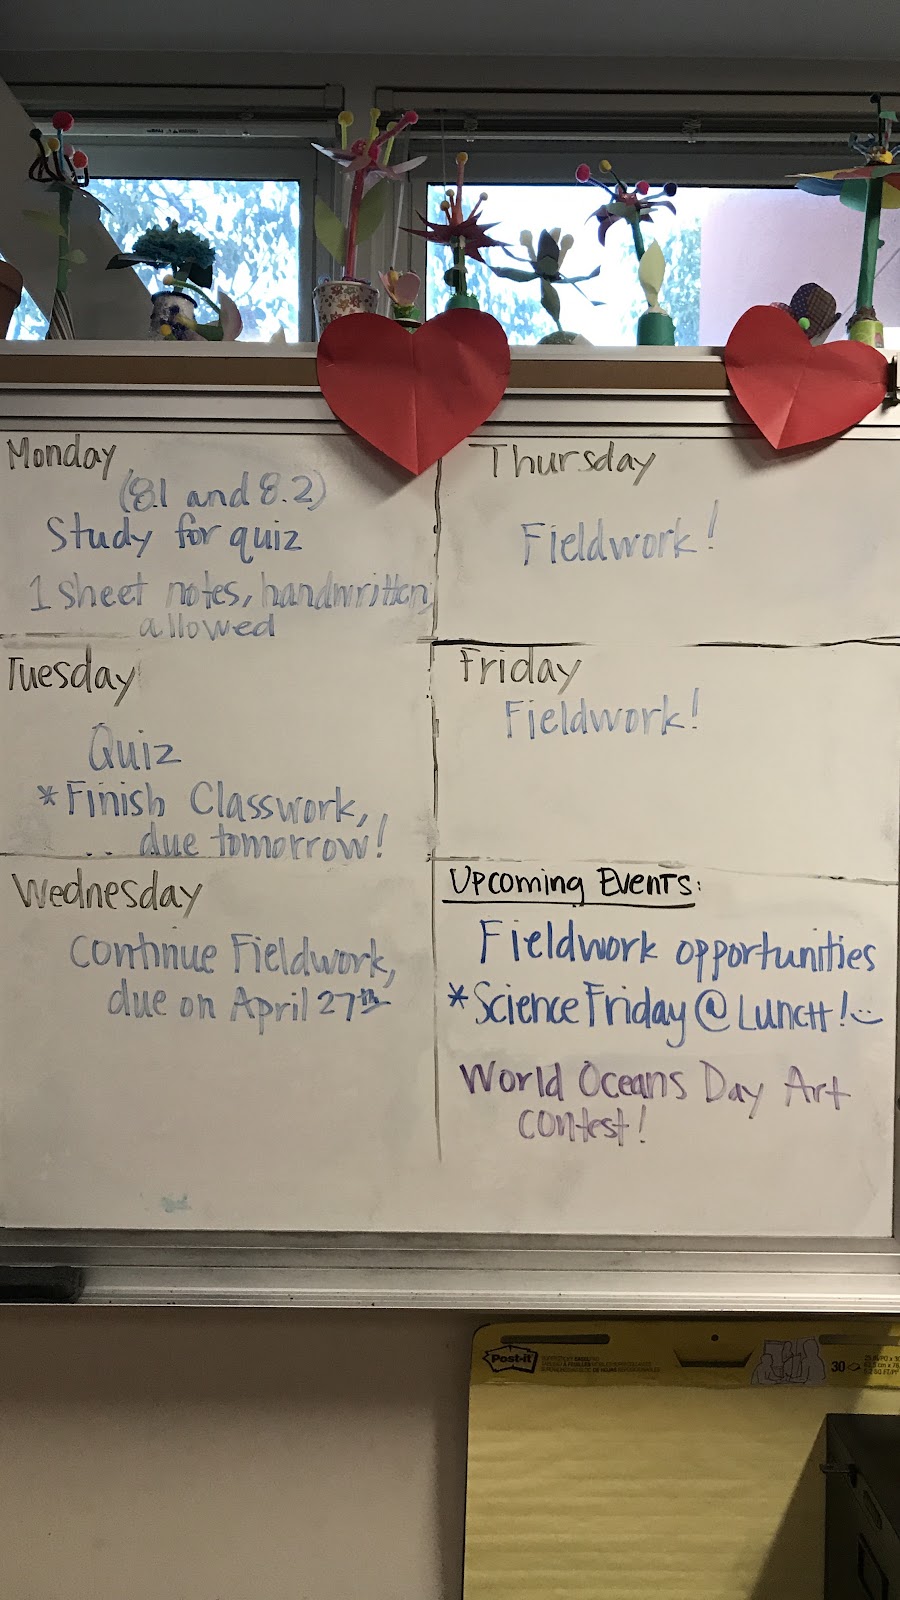 Monday
(8.1 and 8.2)
Study for quiz
1 sheet notes, handwritten,
allowed
Tuesday
Quiz
*Finish Classwork,
due tomorrow!
Wednesday
Continue Fieldwork,
due on April 27th
Thursday
Fieldwork!
Friday
Fieldwork!
Upcoming Events:
Fieldwork opportunities
*Science Friday @ Lunch!
World Oceans Day Art
contest!
Post-it
30